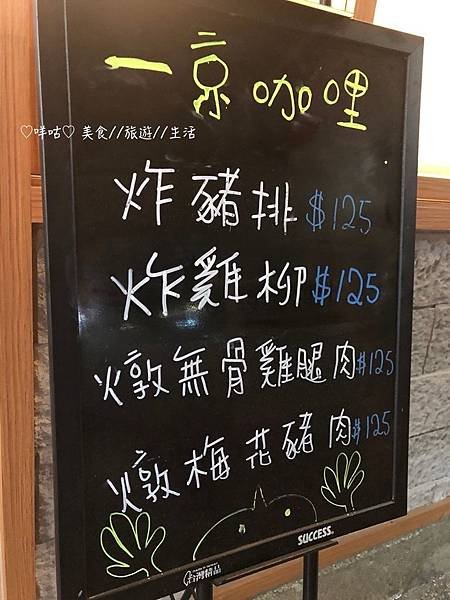 一京咖哩
♡咩咕♡ 美食//旅遊//生活
炸豬排 $125
炸雞柳 $125
燉無骨雞腿肉 $125
燉梅花豬肉 $125
SUCCESS
台灣精品